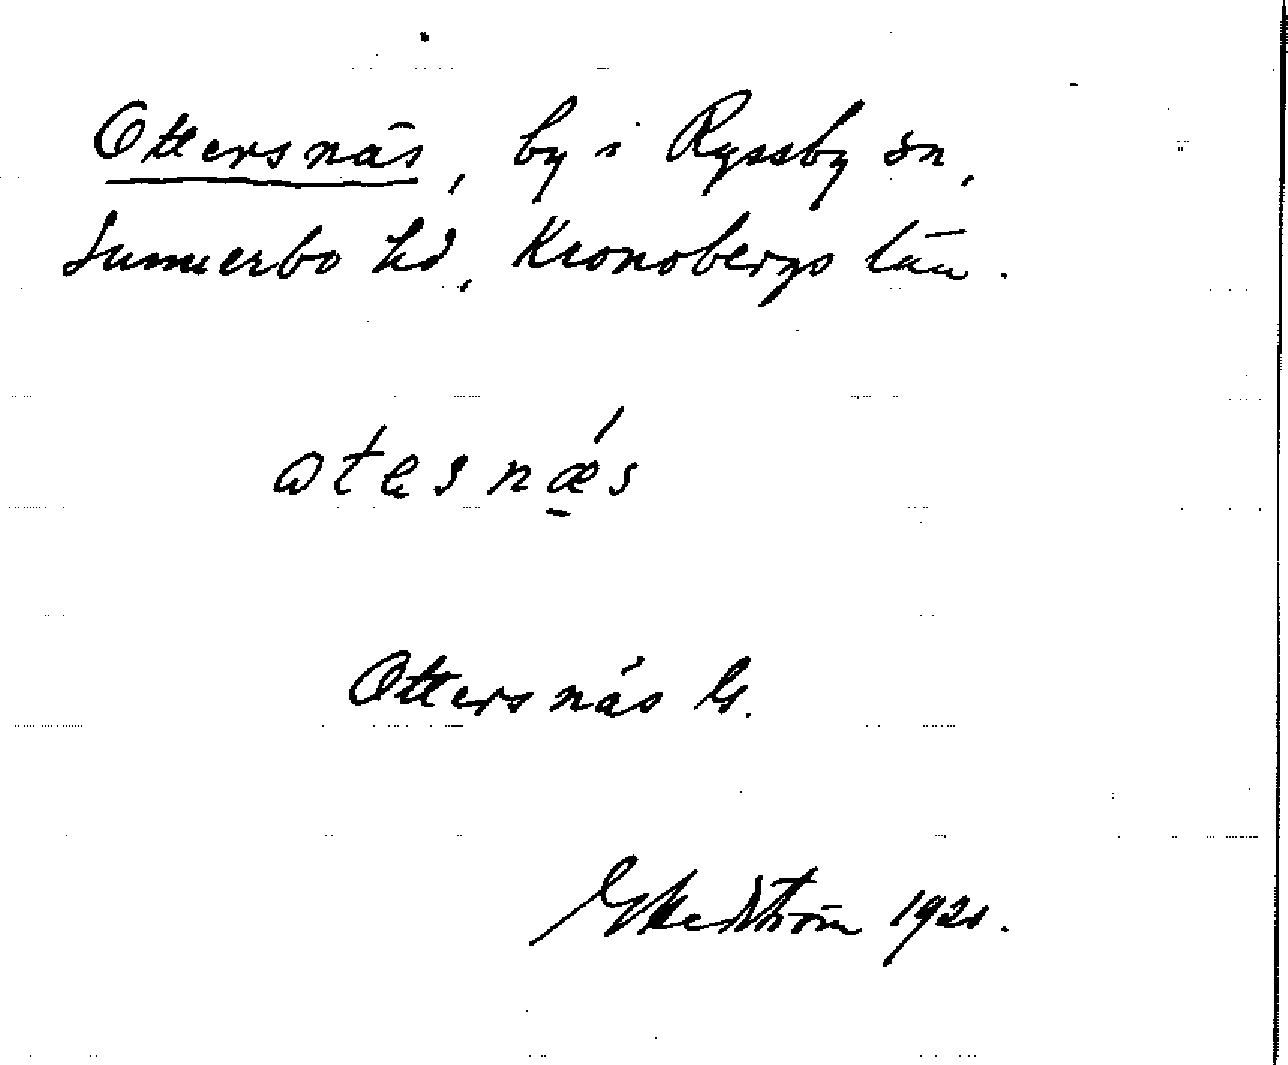 Ottersnäs, by i Ryssby sn,
Sunnerbo hd, Kronobergs län.
otesnæs
Ottersnäs G.
1921.